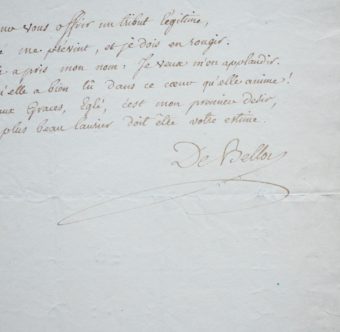 vous offrir un tribut légitime,
me prévint, et je dois en rougir.
a pris mon nom: Je veux m'en applaudir.
qu'elle a bien lu dans ce cœur qu'elle anime!
aux Graces, Eglé, c'est mon premier desir,
plus beau laurier doit être votre estime.
De Belloy